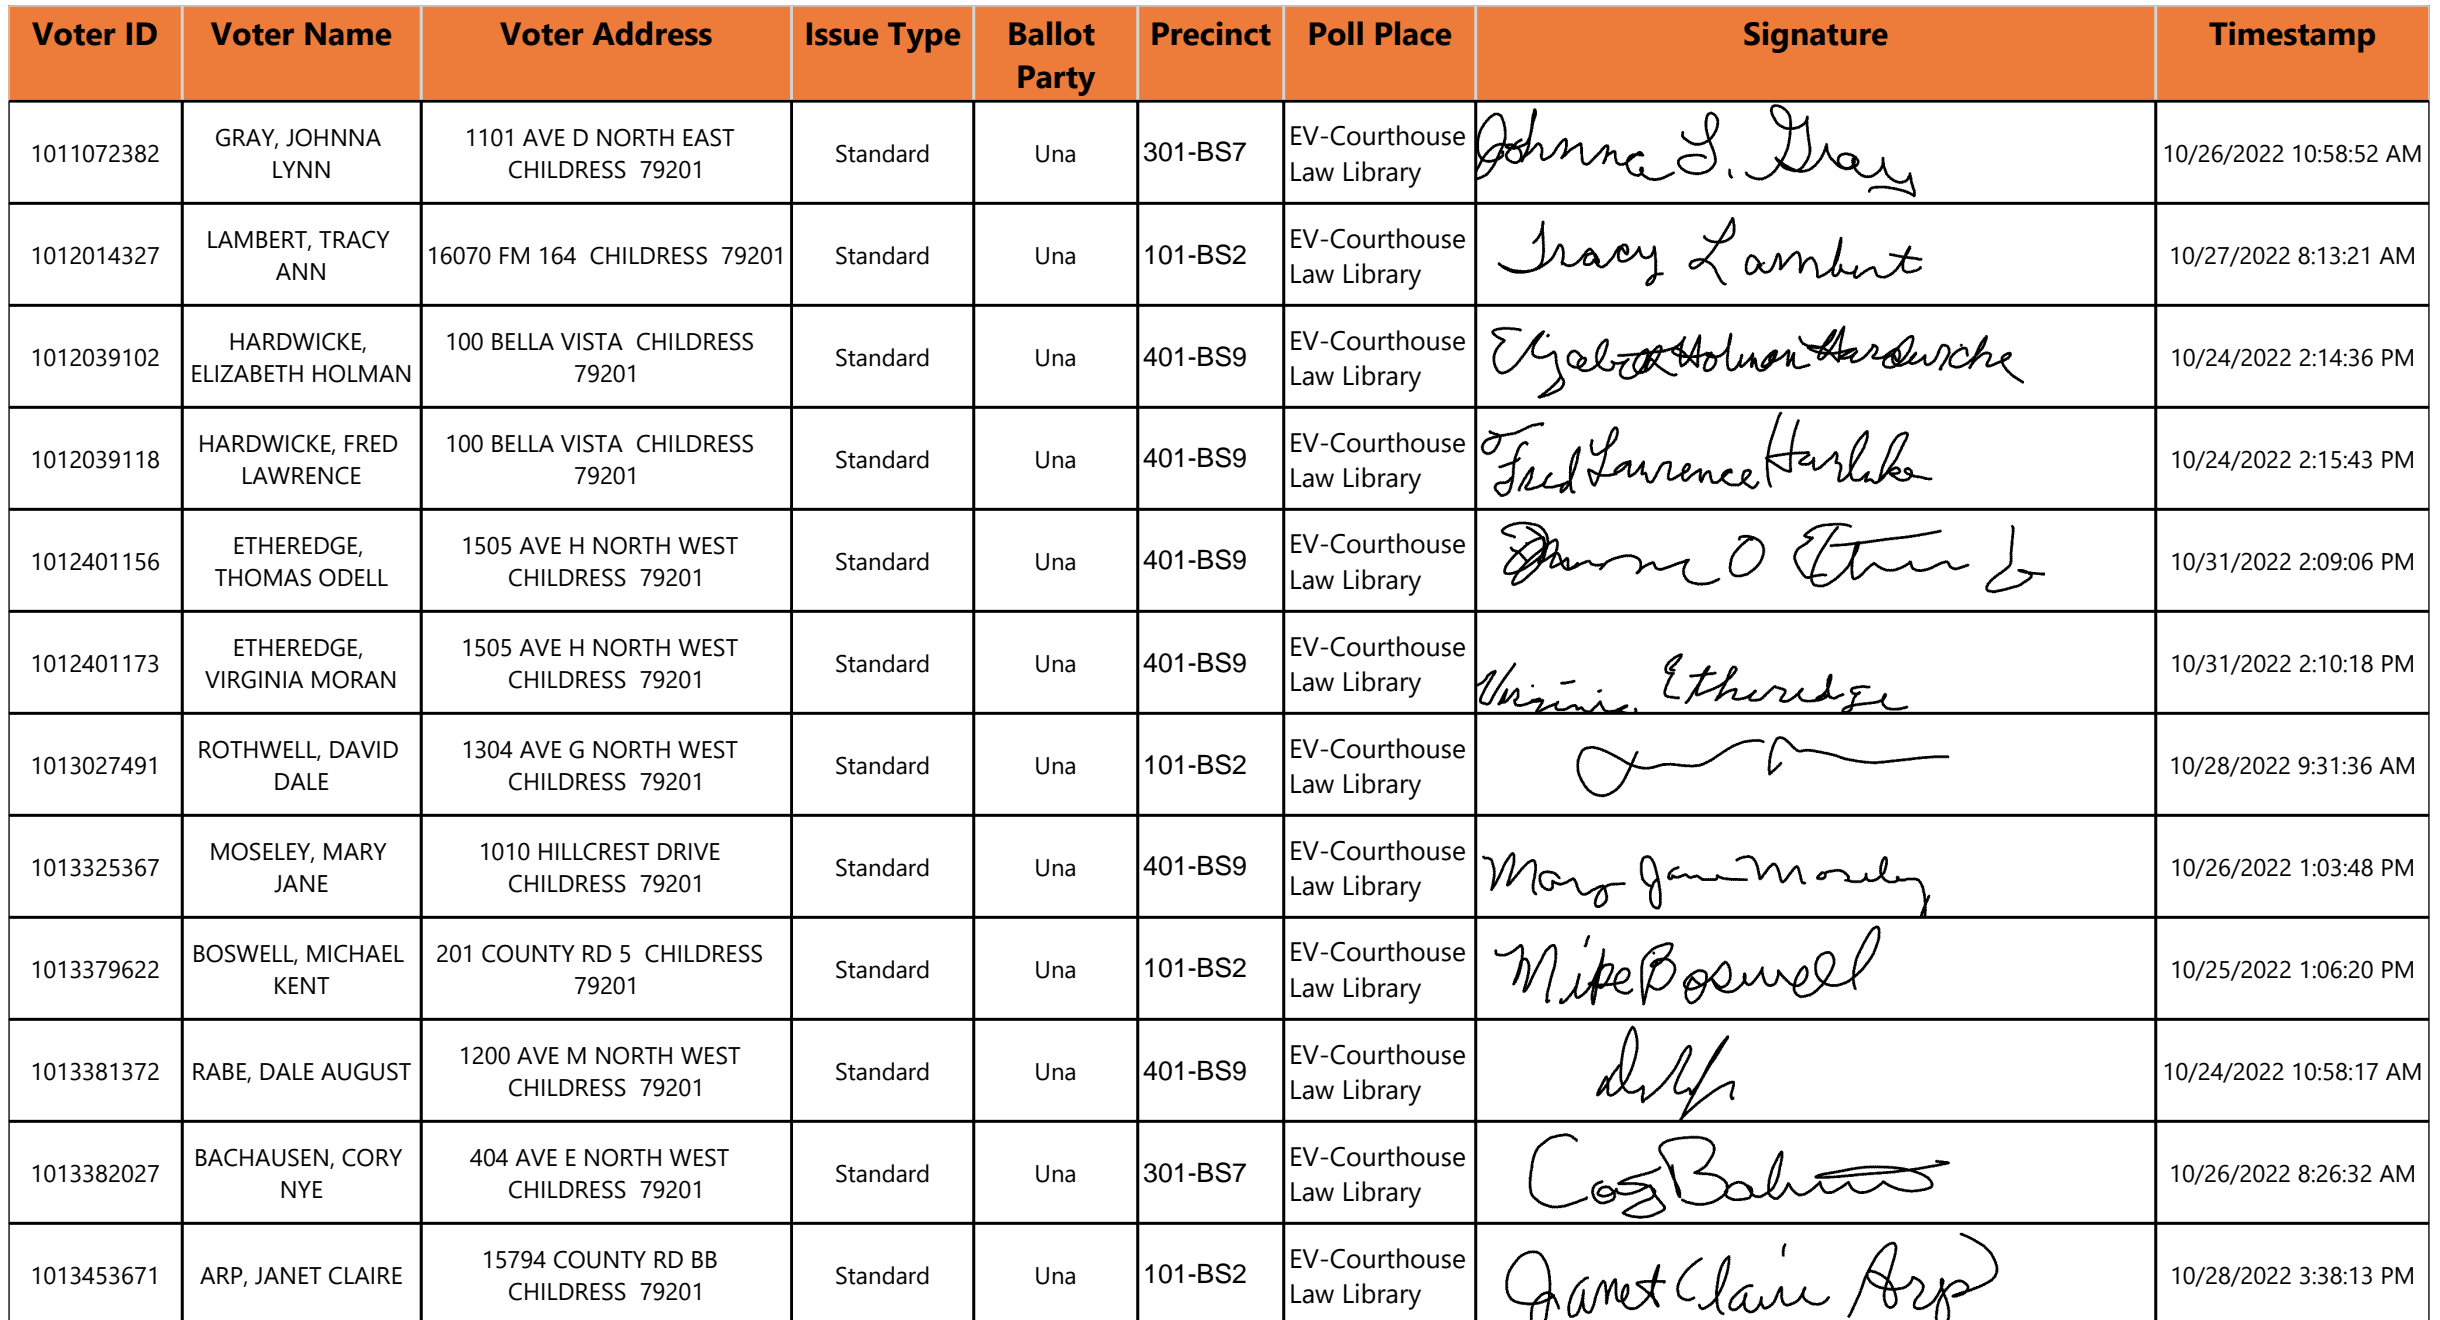 Voter ID Voter Name Voter Address Issue Type Ballot Party Precinct Poll Place Signature Timestamp
1011072382 GRAY, JOHNNA LYNN 1101 AVE D NORTH EAST CHILDRESS 79201 Standard Una 301-BS7 EV-Courthouse Law Library Johnna L. Gray 10/26/2022 10:58:52 AM
1012014327 LAMBERT, TRACY ANN 16070 FM 164 CHILDRESS 79201 Standard Una 101-BS2 EV-Courthouse Law Library Tracy Lambert 10/27/2022 8:13:21 AM
1012039102 HARDWICKE, ELIZABETH HOLMAN 100 BELLA VISTA CHILDRESS 79201 Standard Una 401-BS9 EV-Courthouse Law Library Elizabeth Holman Hardwicke 10/24/2022 2:14:36 PM
1012039118 HARDWICKE, FRED LAWRENCE 100 BELLA VISTA CHILDRESS 79201 Standard Una 401-BS9 EV-Courthouse Law Library Fred Lawrence 10/24/2022 2:15:43 PM
1012401156 ETHEREDGE, THOMAS ODELL 1505 AVE H NORTH WEST CHILDRESS 79201 Standard Una 401-BS9 EV-Courthouse Law Library 10/31/2022 2:09:06 PM
1012401173 ETHEREDGE, VIRGINIA MORAN 1505 AVE H NORTH WEST CHILDRESS 79201 Standard Una 401-BS9 EV-Courthouse Law Library Virginia Etheredge 10/31/2022 2:10:18 PM
1013027491 ROTHWELL, DAVID DALE 1304 AVE G NORTH WEST CHILDRESS 79201 Standard Una 101-BS2 EV-Courthouse Law Library 10/28/2022 9:31:36 AM
1013325367 MOSELEY, MARY JANE 1010 HILLCREST DRIVE CHILDRESS 79201 Standard Una 401-BS9 EV-Courthouse Law Library Mary Jane Moseley 10/26/2022 1:03:48 PM
1013379622 BOSWELL, MICHAEL KENT 201 COUNTY RD 5 CHILDRESS 79201 Standard Una 101-BS2 EV-Courthouse Law Library Mike Boswell 10/25/2022 1:06:20 PM
1013381372 RABE, DALE AUGUST 1200 AVE M NORTH WEST CHILDRESS 79201 Standard Una 401-BS9 EV-Courthouse Law Library 10/24/2022 10:58:17 AM
1013382027 BACHAUSEN, CORY NYE 404 AVE E NORTH WEST CHILDRESS 79201 Standard Una 301-BS7 EV-Courthouse Law Library 10/26/2022 8:26:32 AM
1013453671 ARP, JANET CLAIRE 15794 COUNTY RD BB CHILDRESS 79201 Standard Una 101-BS2 EV-Courthouse Law Library Janet Claire Arp 10/28/2022 3:38:13 PM